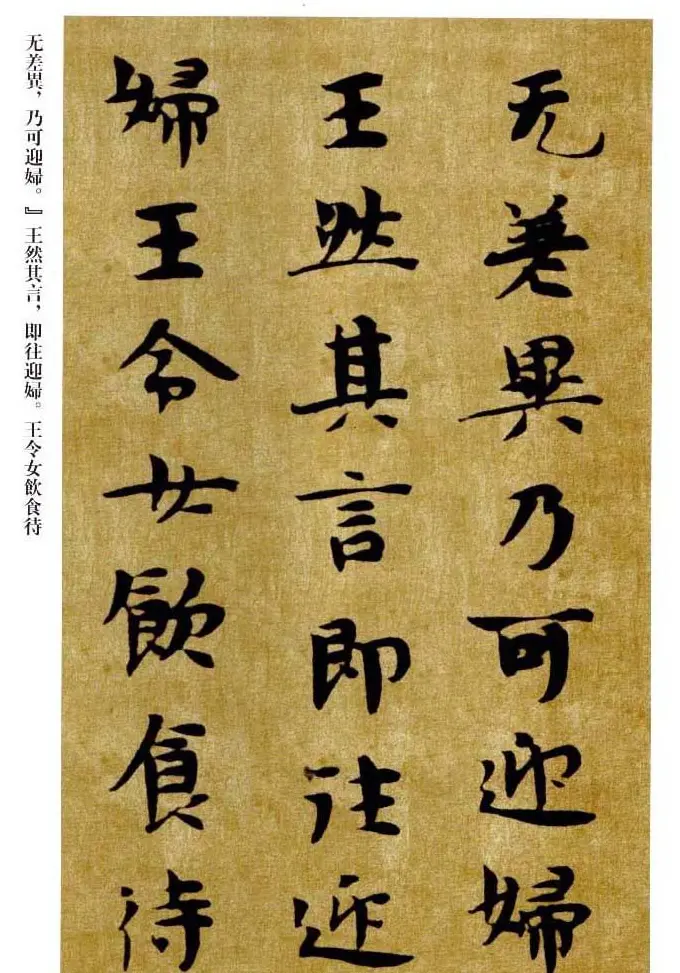 无差異乃可迎婦
王然其言即往迎
婦王令女飲食待
无差異，乃可迎婦。』王然其言，即往迎婦。王令女飲食待